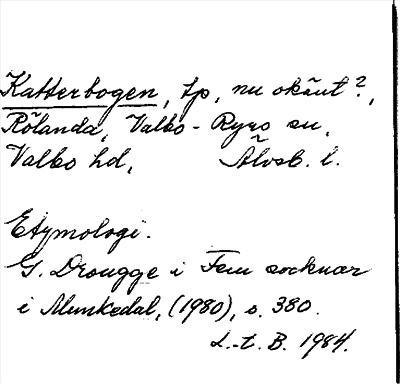 Katterbogen, tp, nu okänt?,
Rölanda, Valbo-Ryrs sn,
Valbo hd, Älvsb. l.
Etymologi.
G. Drougge i Fem socknar
i Munkedal, (1980), s. 380.
L.-t. B. 1984.